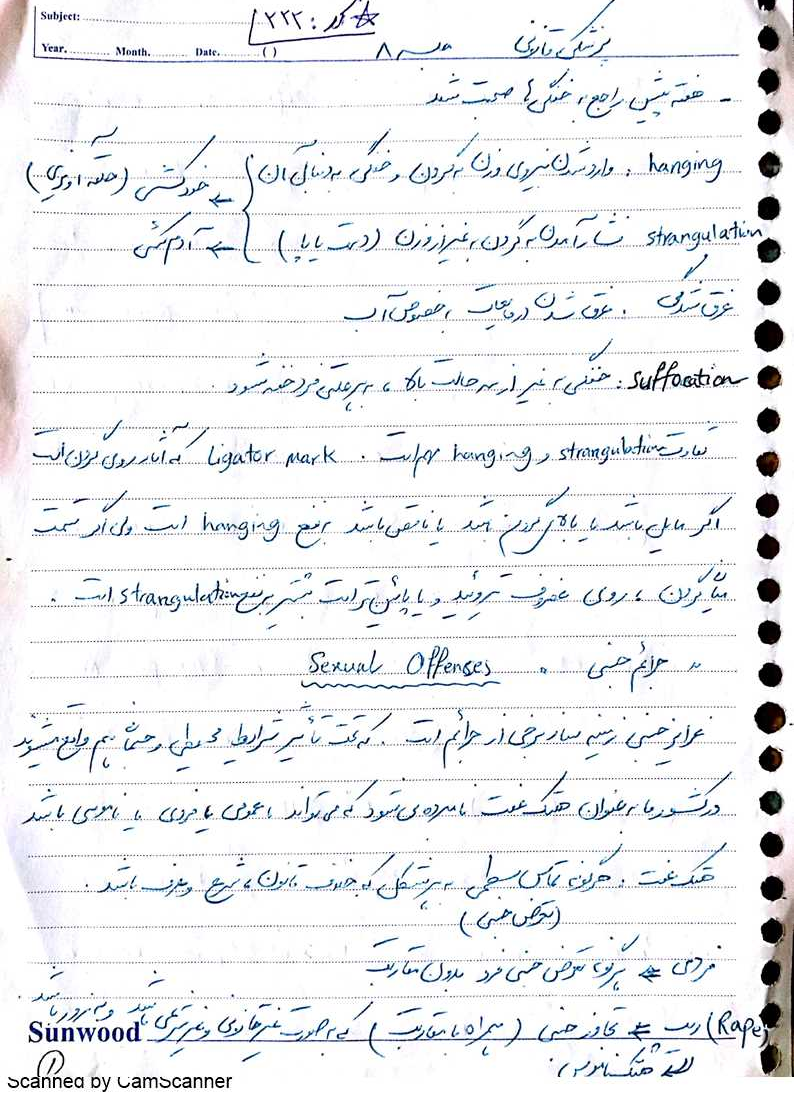 Subject:
کد: ۲۲۲
Year. Month. Date. ( )
پزشکی قانونی جلسه ۸
- هفته پیش راجع به خفگی ها صحبت شد
hanging : وارد شدن نیروی وزن به گردن و خفگی به دنبال آن ← خودکشی (حلقه آویزی)
strangulation فشار آمدن به گردن به غیر از وزن (دست یا پا) ← آدم کشی
غرق شدگی : غرق شدن در مایعات بخصوص آب
suffocation : خفگی به غیر از سه حالت بالا ، به هر علتی فرد خفه شود .
تفاوت strangulation و hanging مهم است . Ligator mark که آثار روی گردن است
اگر مایل باشد یا بالای گردن باشد یا ناقص باشد به نفع hanging است ولی اگر قسمت
میانی گردن ، روی غضروف تیروئید و یا پائین تر است بیشتر به نفع strangulation است .
جرائم جنسی : Sexual Offenses
غرایز جنسی زمینه ساز برخی از جرائم است . که تحت تأثیر شرایط محیطی و هم واقع میشوند
در کشور ما به عنوان هتک عفت نامبرده می شود که می تواند عمومی یا فردی یا ناموسی باشد
هتک عفت : هرگونه تماس سطحی به هر شکلی که خلاف قانون ، شرع و عرف باشد .
(تعرض جنسی)
فردی ← هرگونه تعرض جنسی فرد بدون مقاربت
(Rape) ← تجاوز جنسی (همراه با مقاربت) که به صورت غیرقانونی و غیرشرعی باشد و به زور باشد .
هتک ناموس
Sunwood
①
Scanned by CamScanner